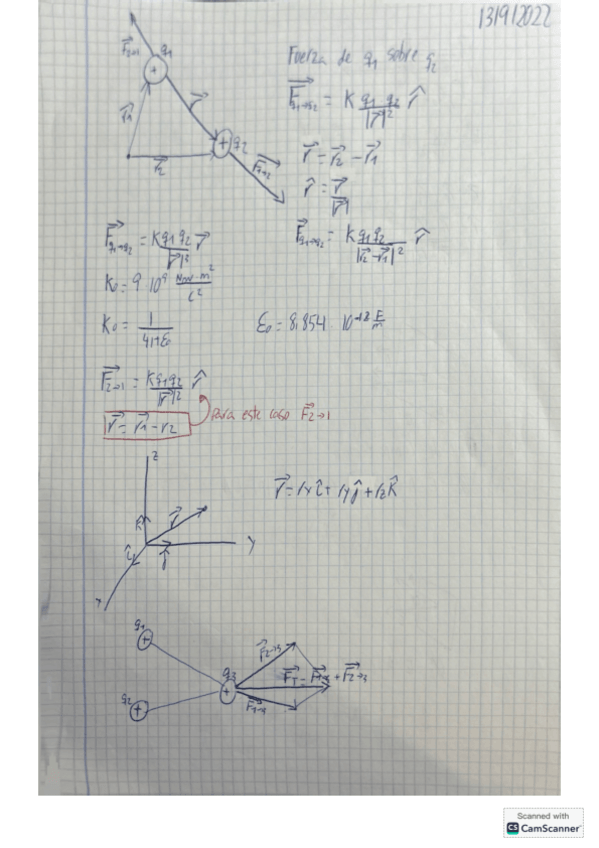 13/9/2022
F⃗2→1 q1
Fuerza de q1 sobre q2
F⃗q1→q2 = K q1 q2 / |r⃗|² r̂
r⃗1 r⃗
q2
r⃗2 F⃗1→2
r⃗ = r⃗2 - r⃗1
r̂ = r⃗ / |r⃗|
F⃗q1→q2 = K q1 q2 / |r⃗2 - r⃗1|² r̂
F⃗q1→q2 = K q1 q2 / |r⃗|² r⃗
K0 = 9 10⁹ New·m² / C²
K0 = 1 / 4πε0
ε0 = 8,854 · 10⁻¹² F/m
F⃗2→1 = K q1 q2 / |r⃗|² r̂
r⃗ = r⃗1 - r2
Para este caso F⃗2→1
z
r⃗ = rx î + ry ĵ + rz k̂
k̂ r⃗
î ĵ y
x
q1
q2
q3
F⃗2→3
F⃗T = F⃗1→3 + F⃗2→3
F⃗1→3
Scanned with
CS CamScanner